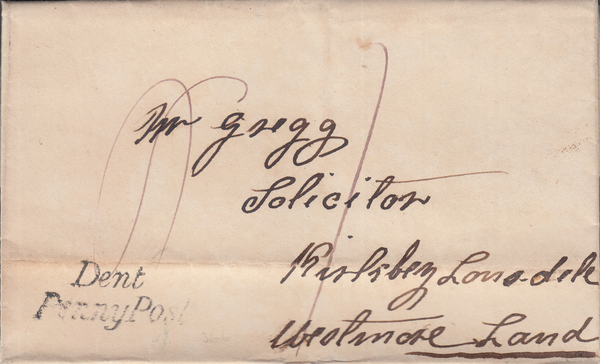 Mr Gregg
Solicitor
Kirksbey Lonsdele
Westmore Land
Dent
Penny Post